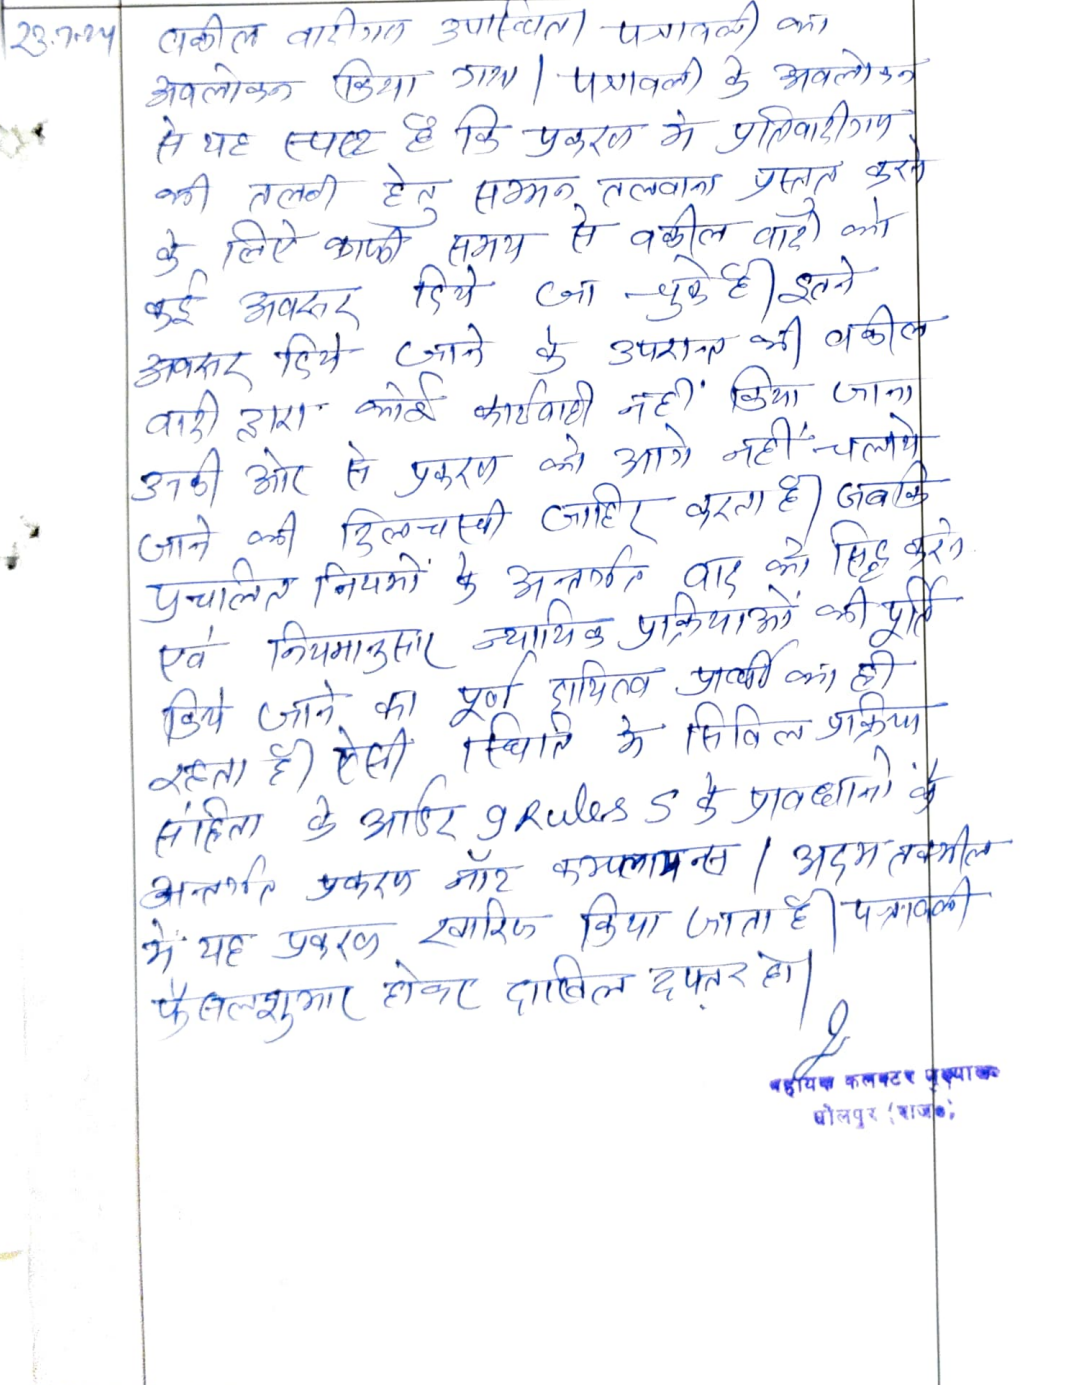 23.7.24 वकील वादीगण उपस्थित। पत्रावली का
अवलोकन किया गया। पत्रावली के अवलोकन
से यह स्पष्ट है कि प्रकरण मे प्रतिवादीगण
की तलवी हेतु सम्मन तलवाना प्रस्तुत करने
के लिऐ काफी समय से वकील वादी को
कई अवसर दिये जा चुके है। इतने
अवसर दिये जाने के उपरान्त भी वकील
वादी द्वारा कोई कार्यवाही नहीं किया जाना
उनकी ओर से प्रकरण को आगे नहीं चलाये
जाने की दिलचस्पी जाहिर करता है। जबकि
प्रचलित नियमों के अन्तर्गत वाद को सिद्ध करने
एवं नियमानुसार न्यायिक प्रक्रियाओं की पूर्ति
किये जाने का पूर्ण दायित्व प्रार्थी का ही
रहता है। ऐसी स्थिति मे सिविल प्रक्रिया
संहिता के आर्डर 9 Rules 5 के प्रावधानों के
अन्तर्गत प्रकरण नॉट कम्पलायन्स / अदम तकमील
मे यह प्रकरण खारिज किया जाता है। पत्रावली
फैसलशुमार होकर दाखिल दफ्तर हो।
सहायक कलक्टर मुख्यालय
धौलपुर (राज०)